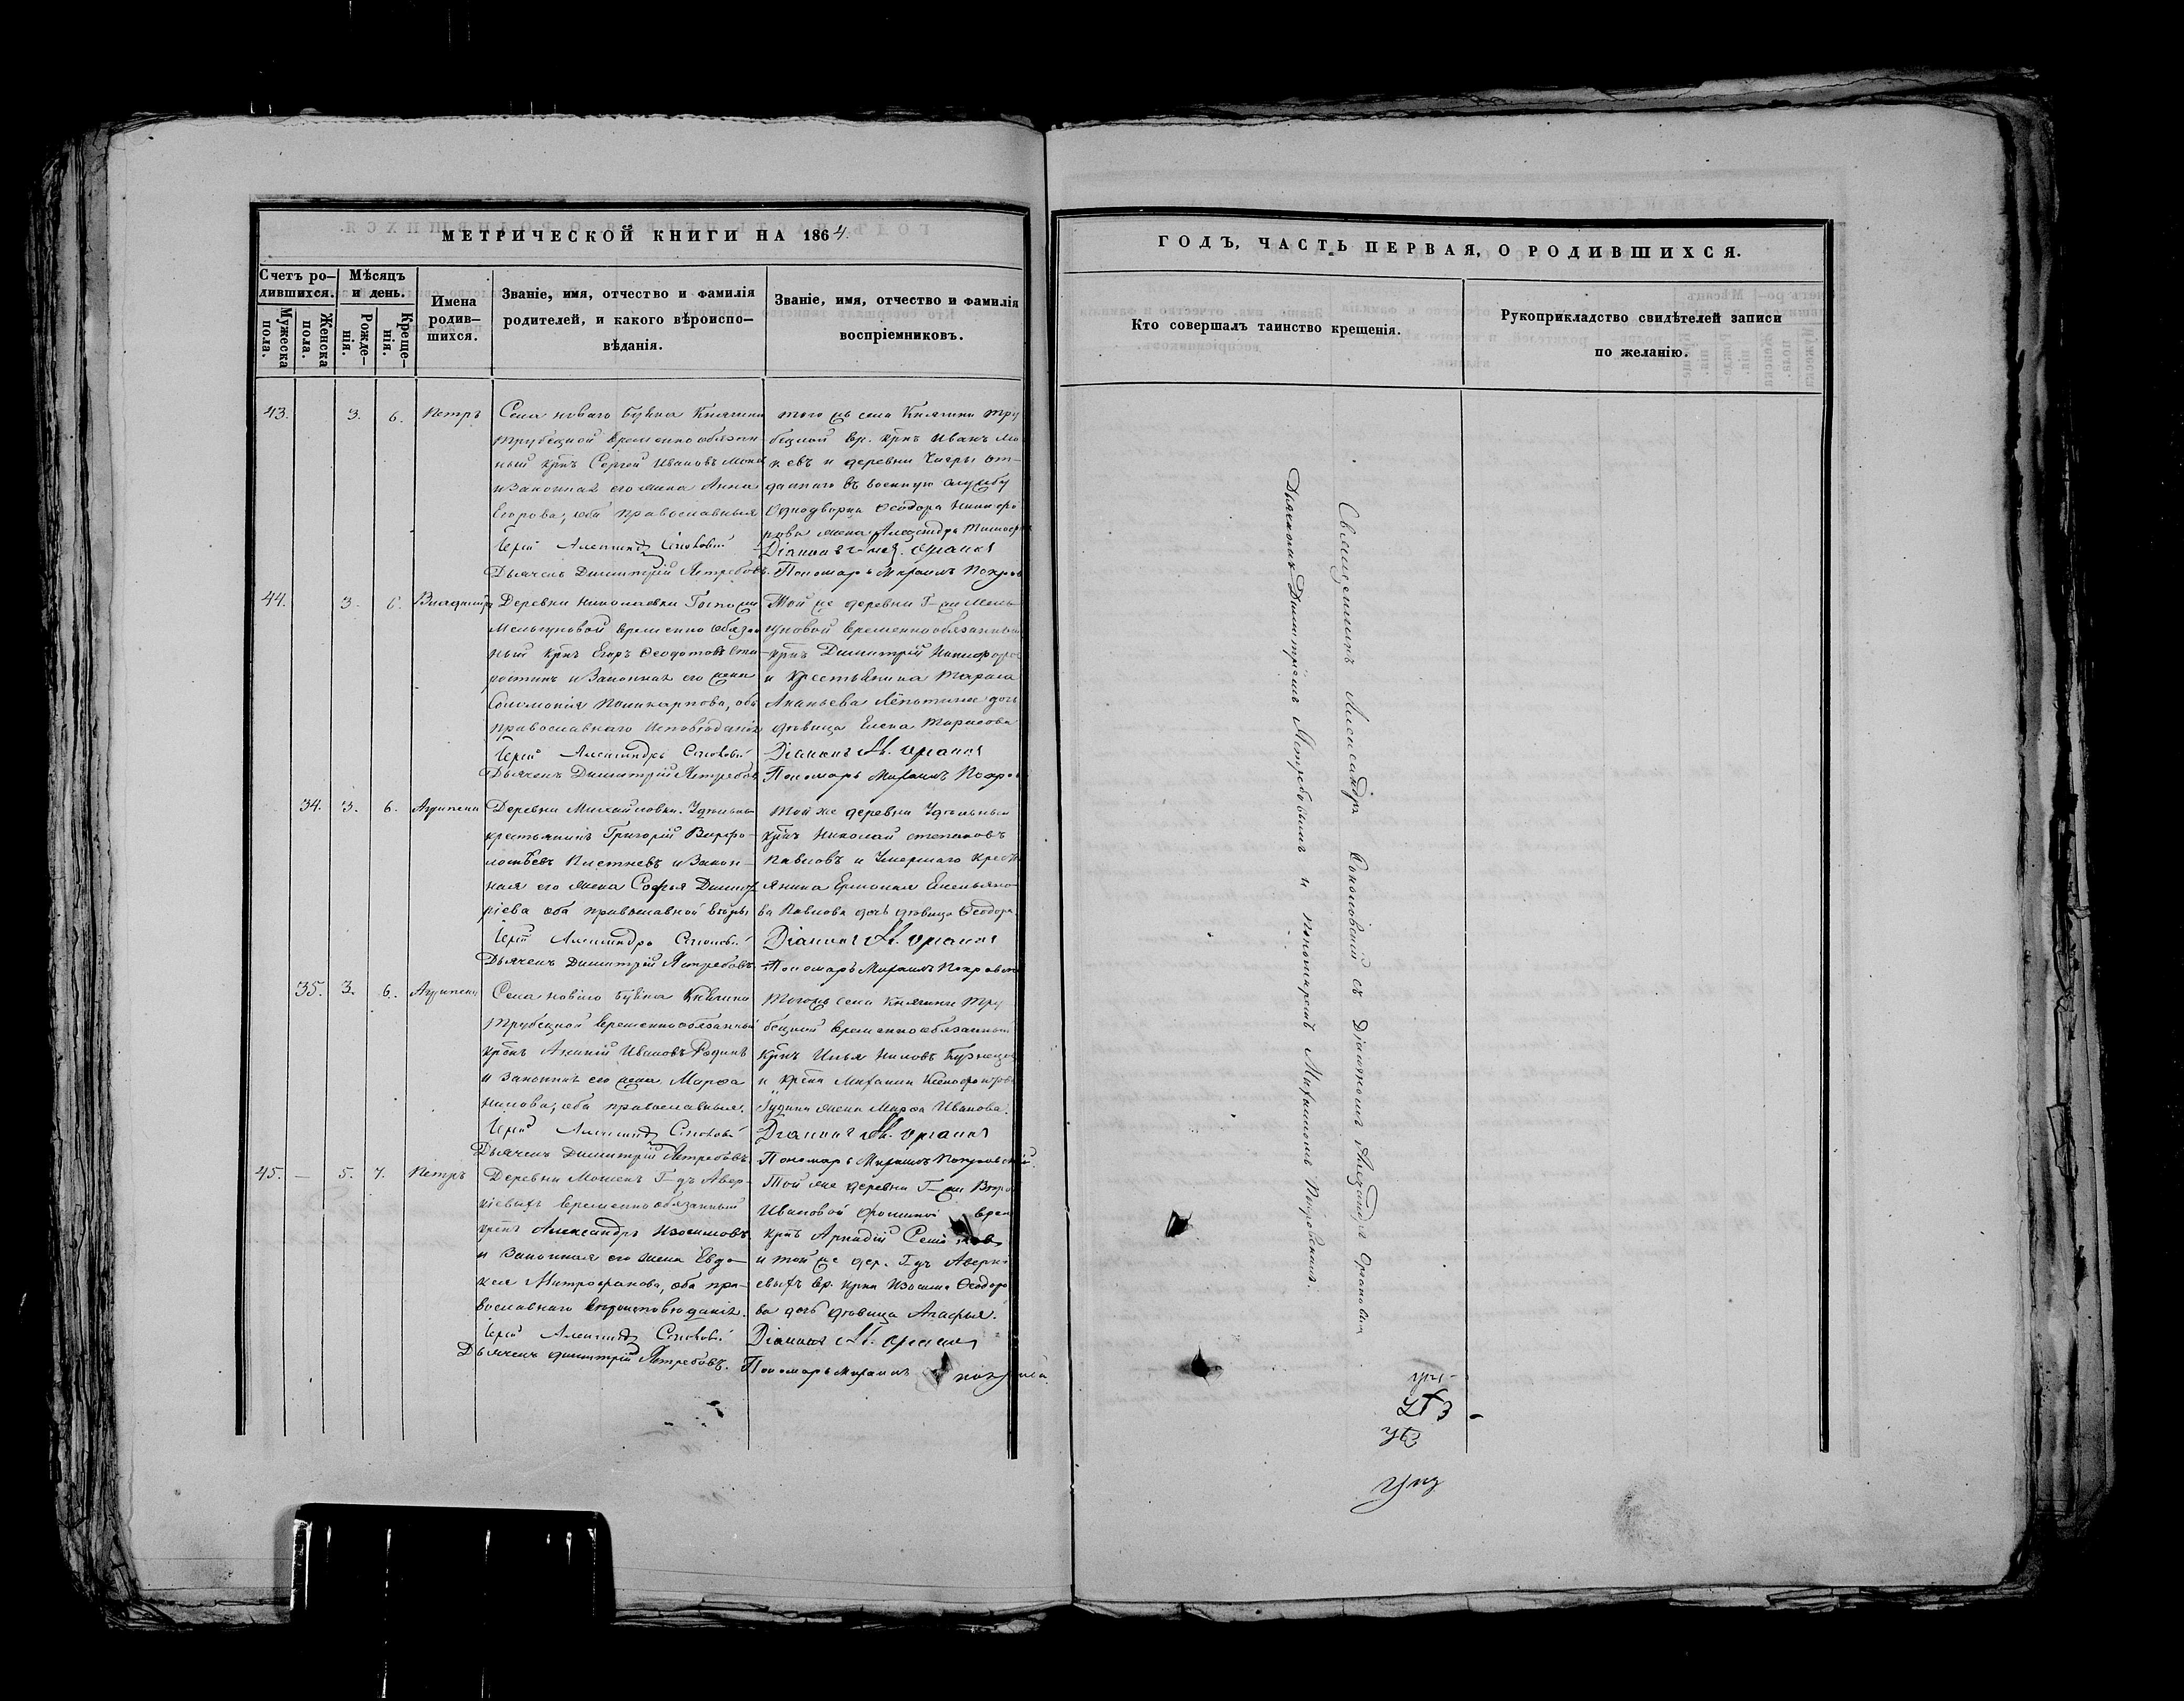 МЕТРИЧЕСКОЙ КНИГИ НА 1864.
Счетъ ро-
дившихся.
Мѣсяцъ
и день.
Мужеска
пола.
Женска
пола.
Рожде-
нія.
Креще-
нія.
Имена
родив-
шихся.
Званіе, имя, отчество и фамилія
родителей, и какого вѣроиспо-
вѣданія.
Званіе, имя, отчество и фамилія
воспріемниковъ.
43. 3. 6. Петръ
Села новаго Буяна Княгини
Трубецкой временно обязан-
ный крнъ Сергей Ивановъ
и законная его жена Анна
Егорова, оба православныя
Іерей Александръ
Дьячекъ Димитрій Ястребовъ.
того жъ села Княгини Тру
бецкой вр. крнъ Иванъ
и деревни от-
даннаго въ военную службу
Однодворца Ѳеодора Никифо
рова жена
Діаконъ
Пономарь Михаилъ Покров
44. 3. 6. Владимиръ
Деревни Николаевки Госпожи
Мельгуновой временно обязан
ный крнъ Егоръ Ѳеодотовъ
и законная его жена
Соломонія Поликарпова, оба
православнаго исповѣданія
Іерей Александръ
Дьячекъ Димитрій Ястребовъ
Той же деревни Г-жи Мель-
гуновой временнообязанный
крнъ Димитрій Никифоров
и крестьянина Тараса
Ананьева дочь
дѣвица Елена Тарасова
Діаконъ Ал.
Пономарь Михаилъ Покров
34. 3. 6. Агрипена
Деревни Михайловки Удѣльны
крестьянинъ Григорій Варфо-
ломѣевъ Плетневъ и закон-
ная его жена Софья Димит
ріева оба православной вѣры
Іерей Александръ
Дьячекъ Димитрій Ястребовъ.
Той же деревни Удѣльный
крнъ Николай Степановъ
Павловъ и умершаго крест
янина Ермолая Емельяно-
ва Павлова дочь дѣвица Ѳеодора.
Діаконъ Ал.
Пономарь Михаилъ Покровск
35. 3. 6. Агрипена
Села новаго Буяна Княгини
Трубецкой временнообязанный
крнъ Ананій Ивановъ Родинъ
и законная его жена Марѳа
Нилова, оба православныя.
Іерей Александръ
Дьячекъ Димитрій Ястребовъ.
Тогожъ села Княгини Тру
бецкой временнообязанный
крнъ Илья Ниловъ
и крна Михаила Ксенофонтова
жена Марѳа Иванова.
Діаконъ Ал.
Пономарь Михаилъ Покровскій.
45. — 5. 7. Петръ
Деревни Г-дъ Авер-
кіевыхъ временно обязанный
крнъ Александръ Изосимовъ
и законная его жена Евдо-
кея Митрофанова, оба пра-
вославнаго вѣроисповѣданія.
Іерей Александръ
Дьячекъ Димитрій Ястребовъ.
Той же деревни Г-жи
Ивановой врем
крнъ Аркадій
и той же дер. Г-дъ Аверкі
евыхъ вр. крна Изосима Ѳеодоро
ва дочь дѣвица Агафья.
Діаконъ Ал.
Пономарь Михаилъ
ГОДЪ, ЧАСТЬ ПЕРВАЯ, О РОДИВШИХСЯ.
Кто совершалъ таинство крещенія.
Рукоприкладство свидѣтелей записи
по желанію.
Священникъ Александръ Соколовскій съ Діакономъ Александромъ
Дьячкомъ Димитріемъ Ястребовымъ и пономаремъ Михаиломъ Покровскимъ.